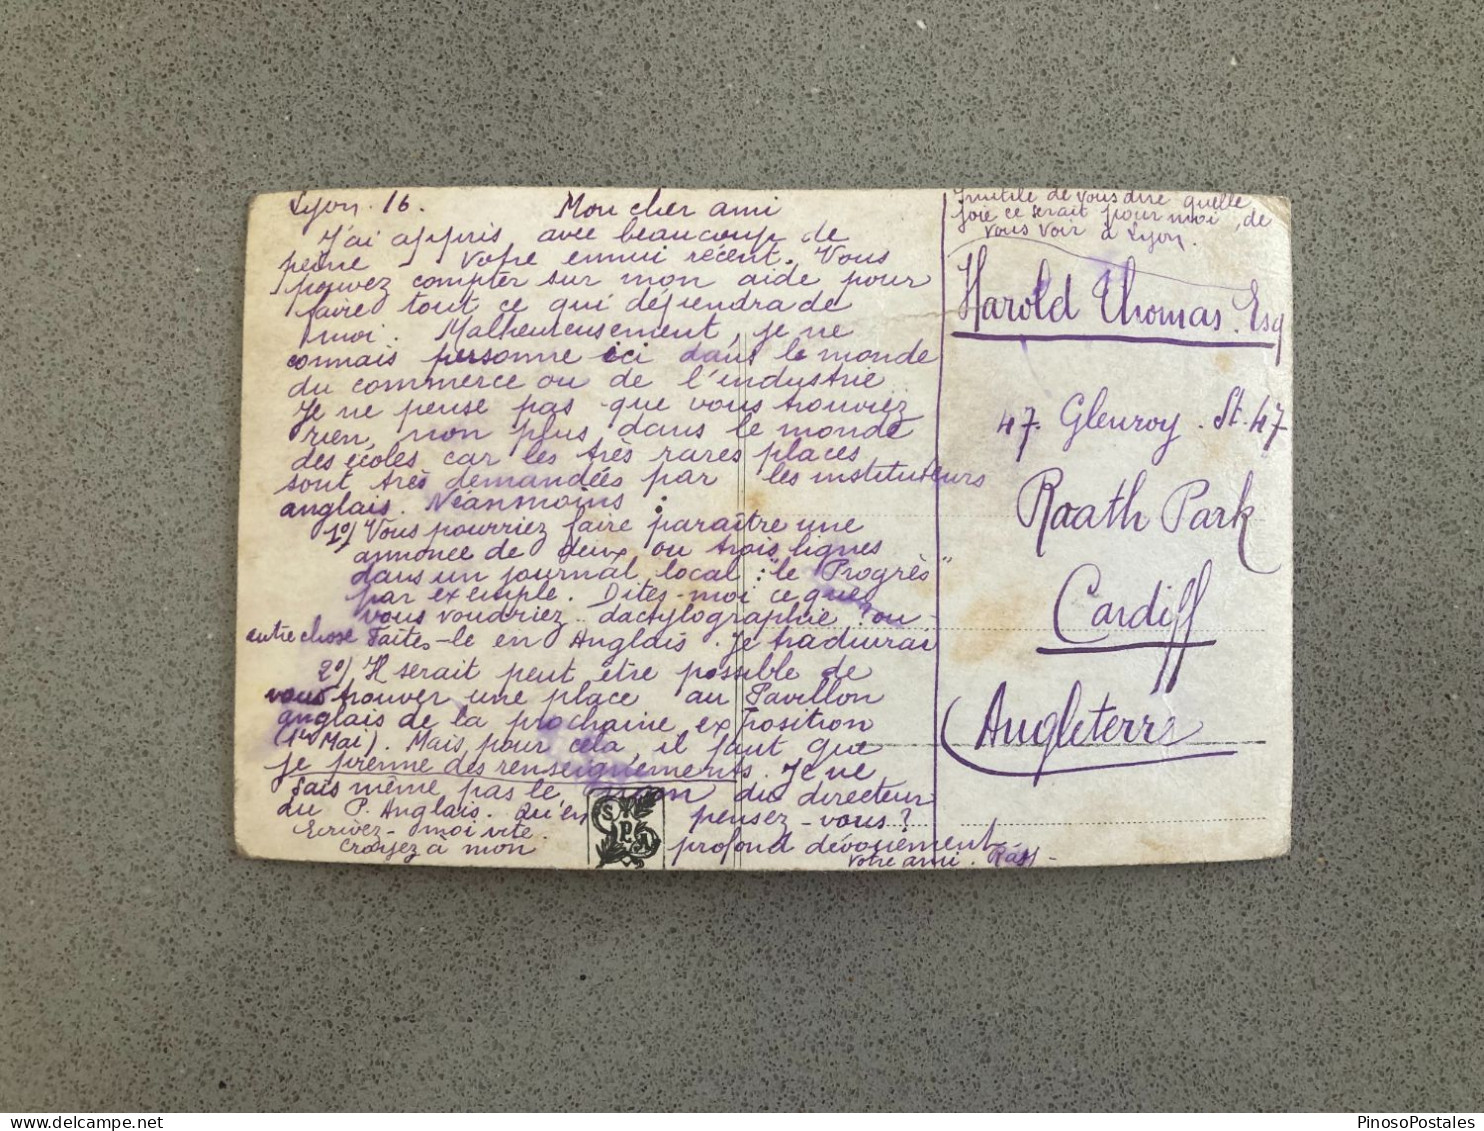 Lyon. 16. Mon cher ami
J'ai appris avec beaucoup de
peine votre ennui récent. Vous
pouvez compter sur mon aide pour
faire tout ce qui dépendra de
moi. Malheureusement, je ne
connais personne ici dans le monde
du commerce ou de l'industrie
Je ne pense pas que vous trouviez
rien, non plus dans le monde
des écoles car les très rares places
sont très demandées par les instituteurs
anglais. Néanmoins :
1º) Vous pourriez faire paraître une
annonce de deux ou trois lignes
dans un journal local : "le Progrès"
par exemple. Dites-moi ce que
vous voudriez dactylographie ou
autre chose Faites-le en Anglais. Je traduirai
2º) Il serait peut être possible de
vous trouver une place au Pavillon
anglais de la prochaine exposition
(1er Mai). Mais pour cela, il faut que
je prenne des renseignements. Je ne
sais même pas le nom du directeur
du P. Anglais. Qu'en pensez-vous?
Ecrivez-moi vite.
croyez à mon profond dévouement
Votre ami.
SPA
Inutile de vous dire quelle
joie ce serait pour moi, de
vous voir à Lyon.
Harold Thomas. Esq
47. Glenroy. St. 47
Raath Park
Cardiff
Angleterre
PinosoPostales